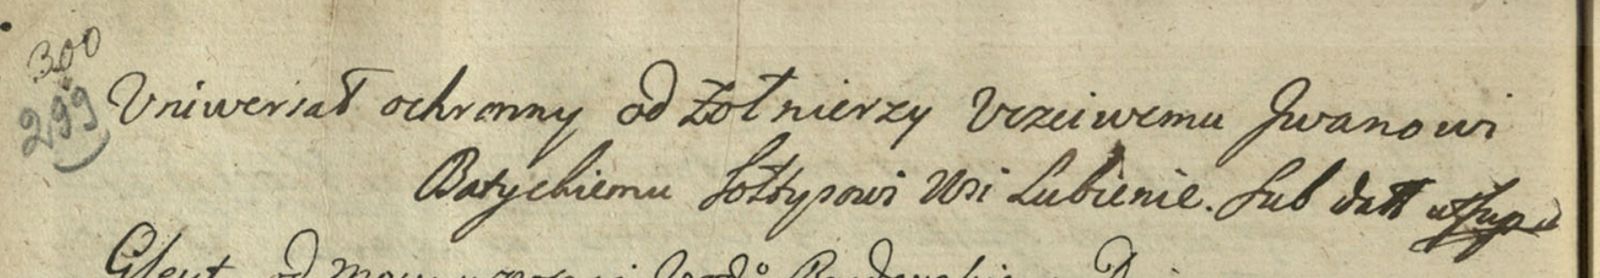 300
299
Vniwersał ochronny od Żołnierzy Vczciwemu Jwanowi
Batyckiemu Sołtysowi Wsi Lubienie. Sub datt utsupra
Gleyt od